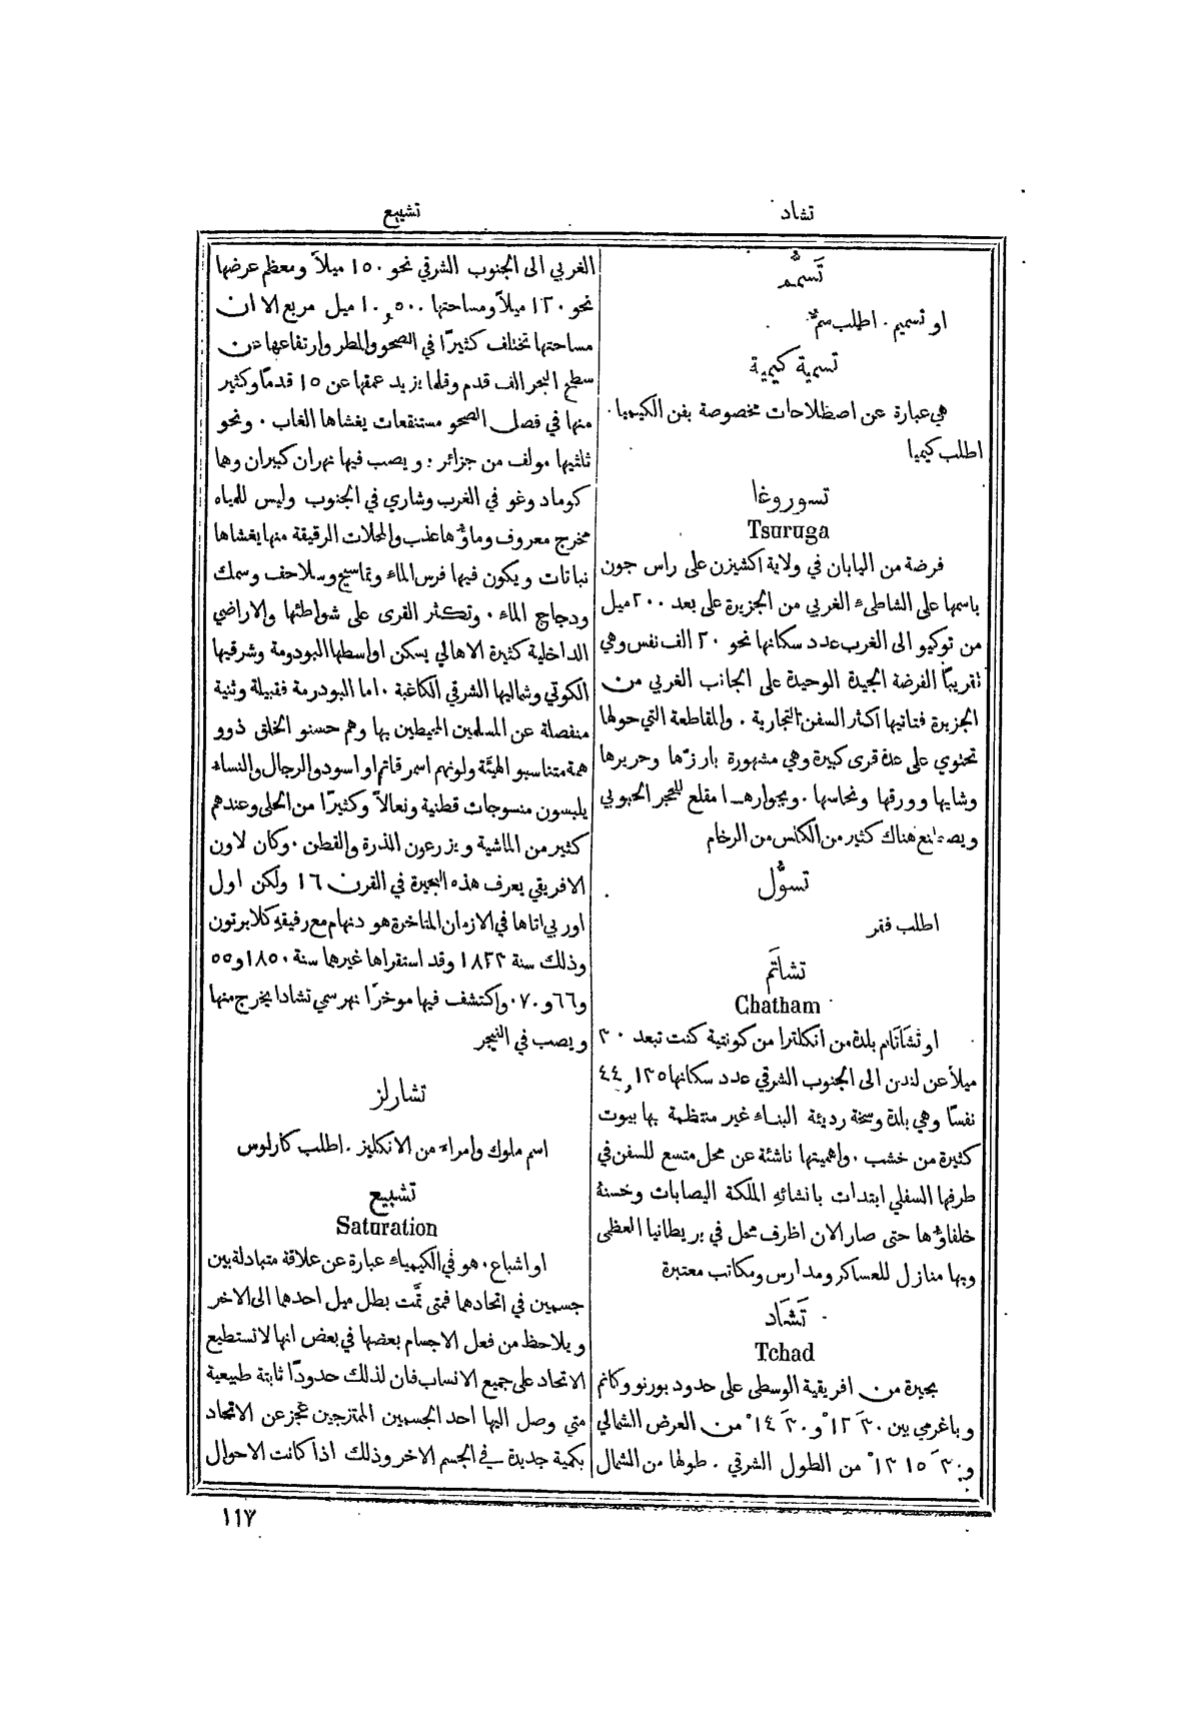 تشاد
تشبيع
تَسمُّم
او تسميم . اطلب سمّ
تسمية كيمية
هي عبارة عن اصطلاحات مخصوصة بفن الكيميا .
اطلب كيميا
تسوروغا
Tsuruga
فرضة من اليابان في ولاية اكشيزن على راس جون
باسمها على الشاطىء الغربي من الجزيرة على بعد ٢٠٠ ميل
من توكيو الى الغرب عدد سكانها نحو ٢٠ الف نفس وهي
تقريبًا الفرضة الجيدة الوحيدة على الجانب الغربي من
الجزيرة فتاتيها اكثر السفن التجارية . والمقاطعة التي حولها
تحتوي على عدة قرى كبيرة وهي مشهورة بارزّها وحريرها
وشايها وورقها ونحاسها . وبجوارها مقلع للحجر الحبوبي
ويصطنع هناك كثير من الكلس من الرخام
تسوُّل
اطلب فقر
تشاتَم
Chatham
او تْشَاتَام بلدة من انكلترا من كونتية كنت تبعد ٣٠
ميلاً عن لندن الى الجنوب الشرقي عدد سكانها ٤٤,١٣٥
نفسًا وهي بلدة وسخة رديئة البناء غير منتظمة بها بيوت
كثيرة من خشب . واهميتها ناشئة عن محل متسع للسفن في
طرفها السفلي ابتدات بانشائهِ الملكة اليصابات وحسنهُ
خلفاؤها حتى صار الان اظرف محل في بريطانيا العظمى
وبها منازل للعساكر ومدارس ومكاتب معتبرة
تَشَاد
Tchad
بحيرة من افريقية الوسطى على حدود بورنو وكانم
وباغرمي بين ٣٠ ١٢ و٣٠ ١٤ من العرض الشمالي
و٣٠ ١٣ ١٥ من الطول الشرقي . طولها من الشمال
الغربي الى الجنوب الشرقي نحو ١٥٠ ميلاً ومعظم عرضها
نحو ١٢٠ ميلاً ومساحتها ١٠,٥٠٠ ميل مربع الا ان
مساحتها تختلف كثيرًا في الصحو والمطر وارتفاعها عن
سطح البحر الف قدم وقلما يزيد عمقها عن ١٥ قدمًا وكثير
منها في فصل الصحو مستنقعات يغشاها الغاب . ونحو
ثلثيها مولف من جزائر . ويصب فيها نهران كبيران وهما
كوماد وغو في الغرب وشاري في الجنوب وليس للمياه
مخرج معروف وماؤها عذب والمحلات الرقيقة منها يغشاها
نباتات ويكون فيها فرس الماء وتماسيح وسلاحف وسمك
ودجاج الماء . وتكثر القرى على شواطئها والاراضي
الداخلية كثيرة الاهالي يسكن اواسطها البودومة وشرقيها
الكوتي وشماليها الشرقي الكاغبة . اما البودرمة فقبيلة وثنية
منفصلة عن المسلمين المحيطين بها وهم حسنو الخلق ذوو
همة متناسبو الهيئة ولونهم اسمر قاتم او اسود والرجال والنساء
يلبسون منسوجات قطنية ونعالاً وكثيرًا من الحلى وعندهم
كثير من الماشية ويزرعون الذرة والقطن . وكان لاون
الافريقي يعرف هذه البحيرة في القرن ١٦ ولكن اول
اوربي اتاها في الازمان المتاخرة هو دنهام مع رفيقهِ كلابرتون
وذلك سنة ١٨٢٣ وقد استقراها غيرها سنة ١٨٥٠ و٥٥
و٦٦ و٧٠ . واكتشف فيها موخرًا نهر سمي تشادا يخرج منها
ويصب في النيجر
تشارلز
اسم ملوك وامراء من الانكليز . اطلب كارلوس
تشبيع
Saturation
او اشباع . هو في الكيمياء عبارة عن علاقة متبادلة بين
جسمين في اتحادهما فمتى تمَّت بطل ميل احدهما الى الاخر
ويلاحظ من فعل الاجسام بعضها في بعض انها لا تستطيع
الاتحاد على جميع الانساب فان لذلك حدودًا ثابتة طبيعية
متي وصل اليها احد الجسمين الممتزجين عجز عن الاتحاد
بكمية جديدة في الجسم الاخر وذلك اذا كانت الاحوال
١١٧